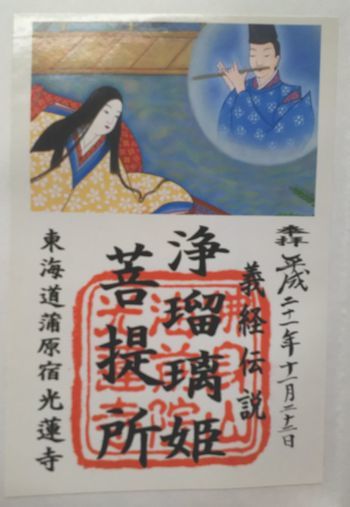 奉拝 平成二十一年十一月二十二日
義経伝説
浄瑠璃姫
菩提所
東海道蒲原宿光蓮寺